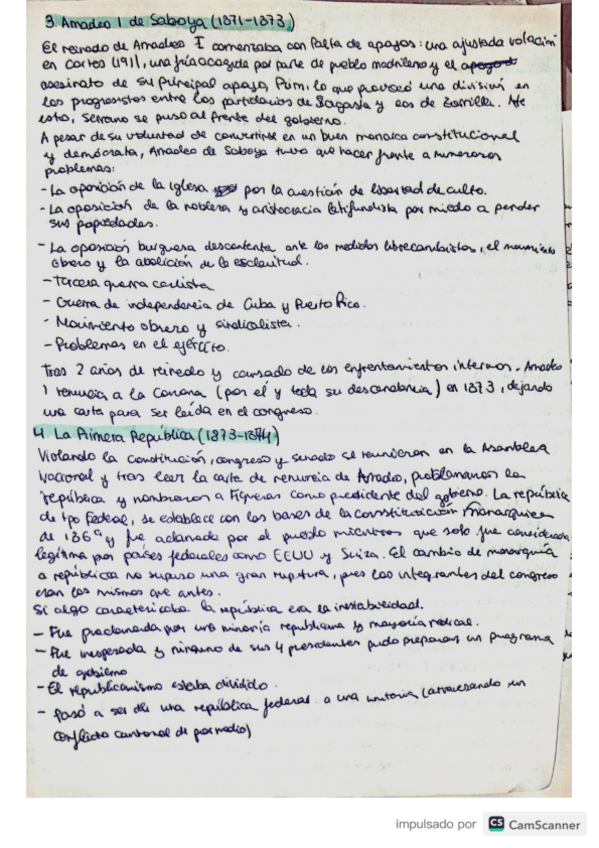 3. Amadeo I de Saboya (1871-1873)
El reinado de Amadeo I comenzaba con falta de apoyos: una ajustada votación
en cortes 191, una fría acogida por parte de pueblo madrileño y el
asesinato de su principal apoyo, Prim, lo que provocó una división en
los progresistas entre los partidarios de Sagasta y los de Zorrilla. Ante
esto, Serrano se puso al frente del gobierno.
A pesar de su voluntad de convertirse en un buen monarca constitucional
y demócrata, Amadeo de Saboya tuvo que hacer frente a numerosos
problemas:
- La oposición de la Iglesia por la cuestión de libertad de culto.
- La oposición de la nobleza y aristocracia latifundista por miedo a perder
sus propiedades.
- La oposición burguesa descontenta ante las medidas librecambistas, el movimiento
obrero y la abolición de la esclavitud.
- Tercera guerra carlista
- Guerra de independencia de Cuba y Puerto Rico.
- Movimiento obrero y sindicalista.
- Problemas en el ejército.
Tras 2 años de reinado y cansado de los enfrentamientos internos. Amadeo
I renuncia a la Corona (por él y toda su descendencia) en 1873, dejando
una carta para ser leída en el congreso.
4. La Primera República (1873-1874)
Violando la constitución, congreso y senado se reunieron en la Asamblea
Nacional y tras leer la carta de renuncia de Amadeo, proclamaron la
república y nombraron a Figueras como presidente del gobierno. La república
de tipo Federal, se establece con las bases de la constitución monárquica
de 1869 y fue aclamada por el pueblo mientras que solo fue considerada
legítima por países federales como EEUU y Suiza. El cambio de monarquía
a república no supuso una gran ruptura, pues los integrantes del congreso
eran los mismos que antes.
Si algo caracterizaba la república era la inestabilidad.
- Fue proclamada por una minoría republicana y mayoría radical.
- Fue inesperada y ninguno de sus 4 presidentes pudo preparar un programa
de gobierno
- El republicanismo estaba dividido.
- Pasó a ser de una república federal a una unitaria (atravesando un
conflicto cantonal de por medio)
impulsado por CS CamScanner